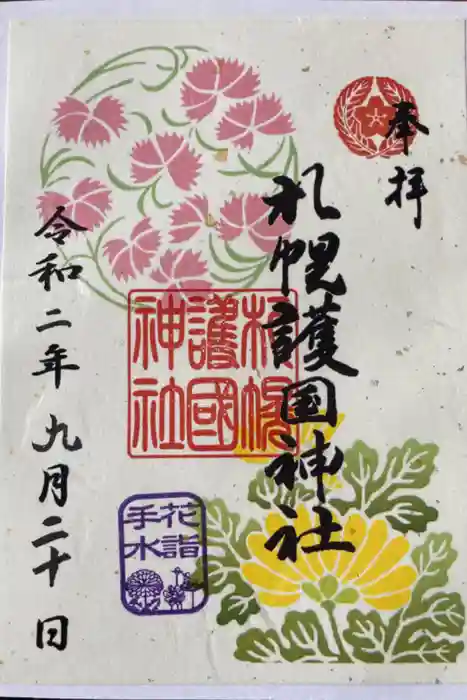 奉拝
札幌護国神社
札幌
護國
神社
花詣
手水
令和二年九月二十日